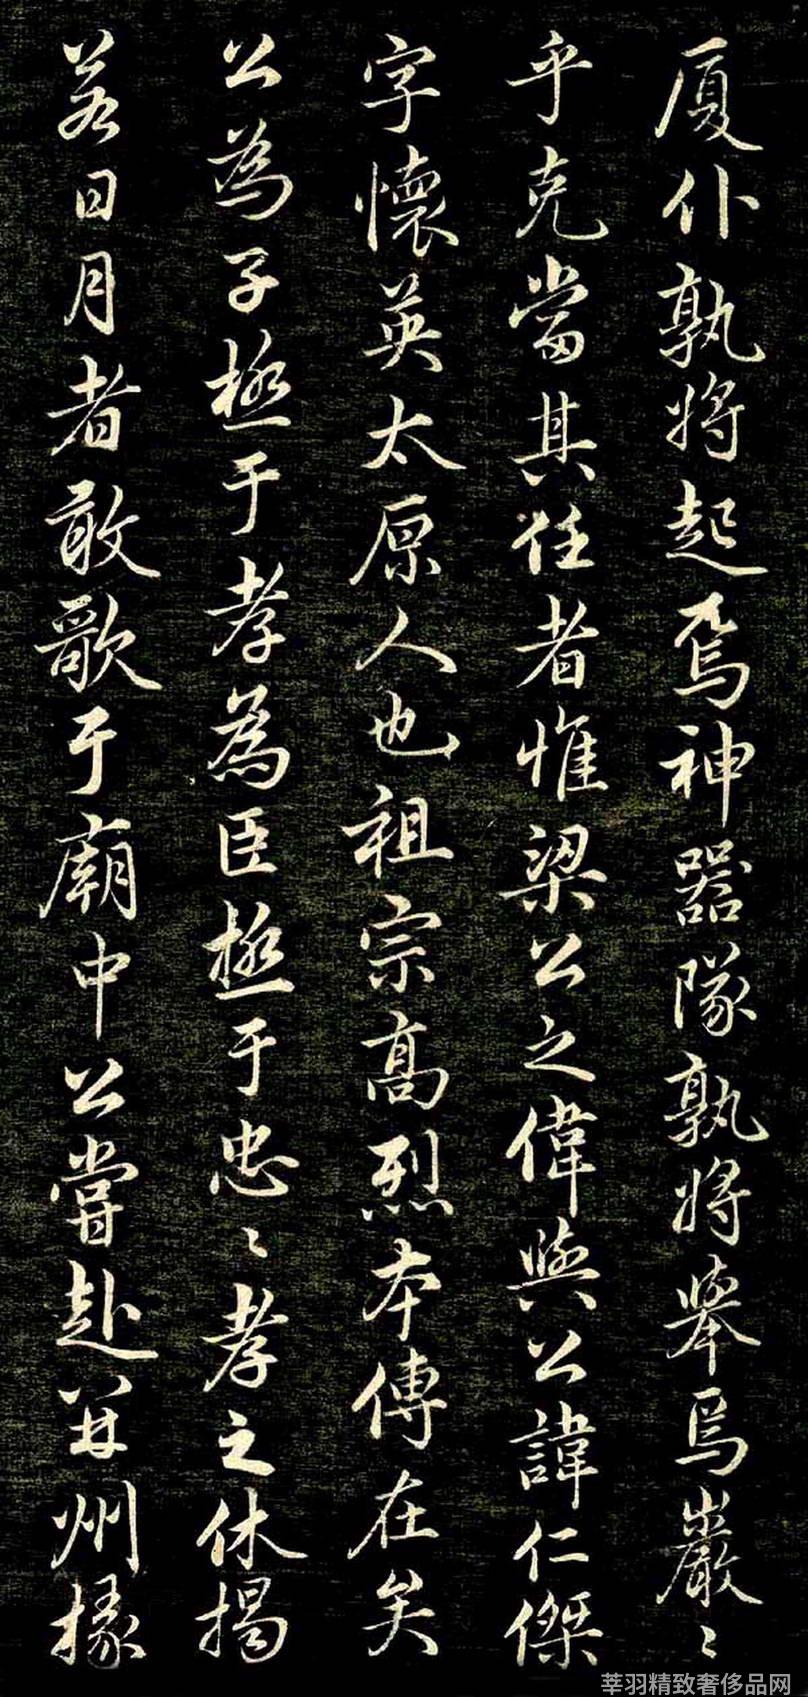 厦仆孰將起焉神器隊孰將舉焉巖〻
乎克當其任者惟梁公之偉歟公諱仁傑
字懷英太原人也祖宗高烈本傳在矣
公為子極于孝為臣極于忠〻孝之休揭
若日月者敢歌于廟中公嘗赴并州掾
莘羽精致奢侈品网